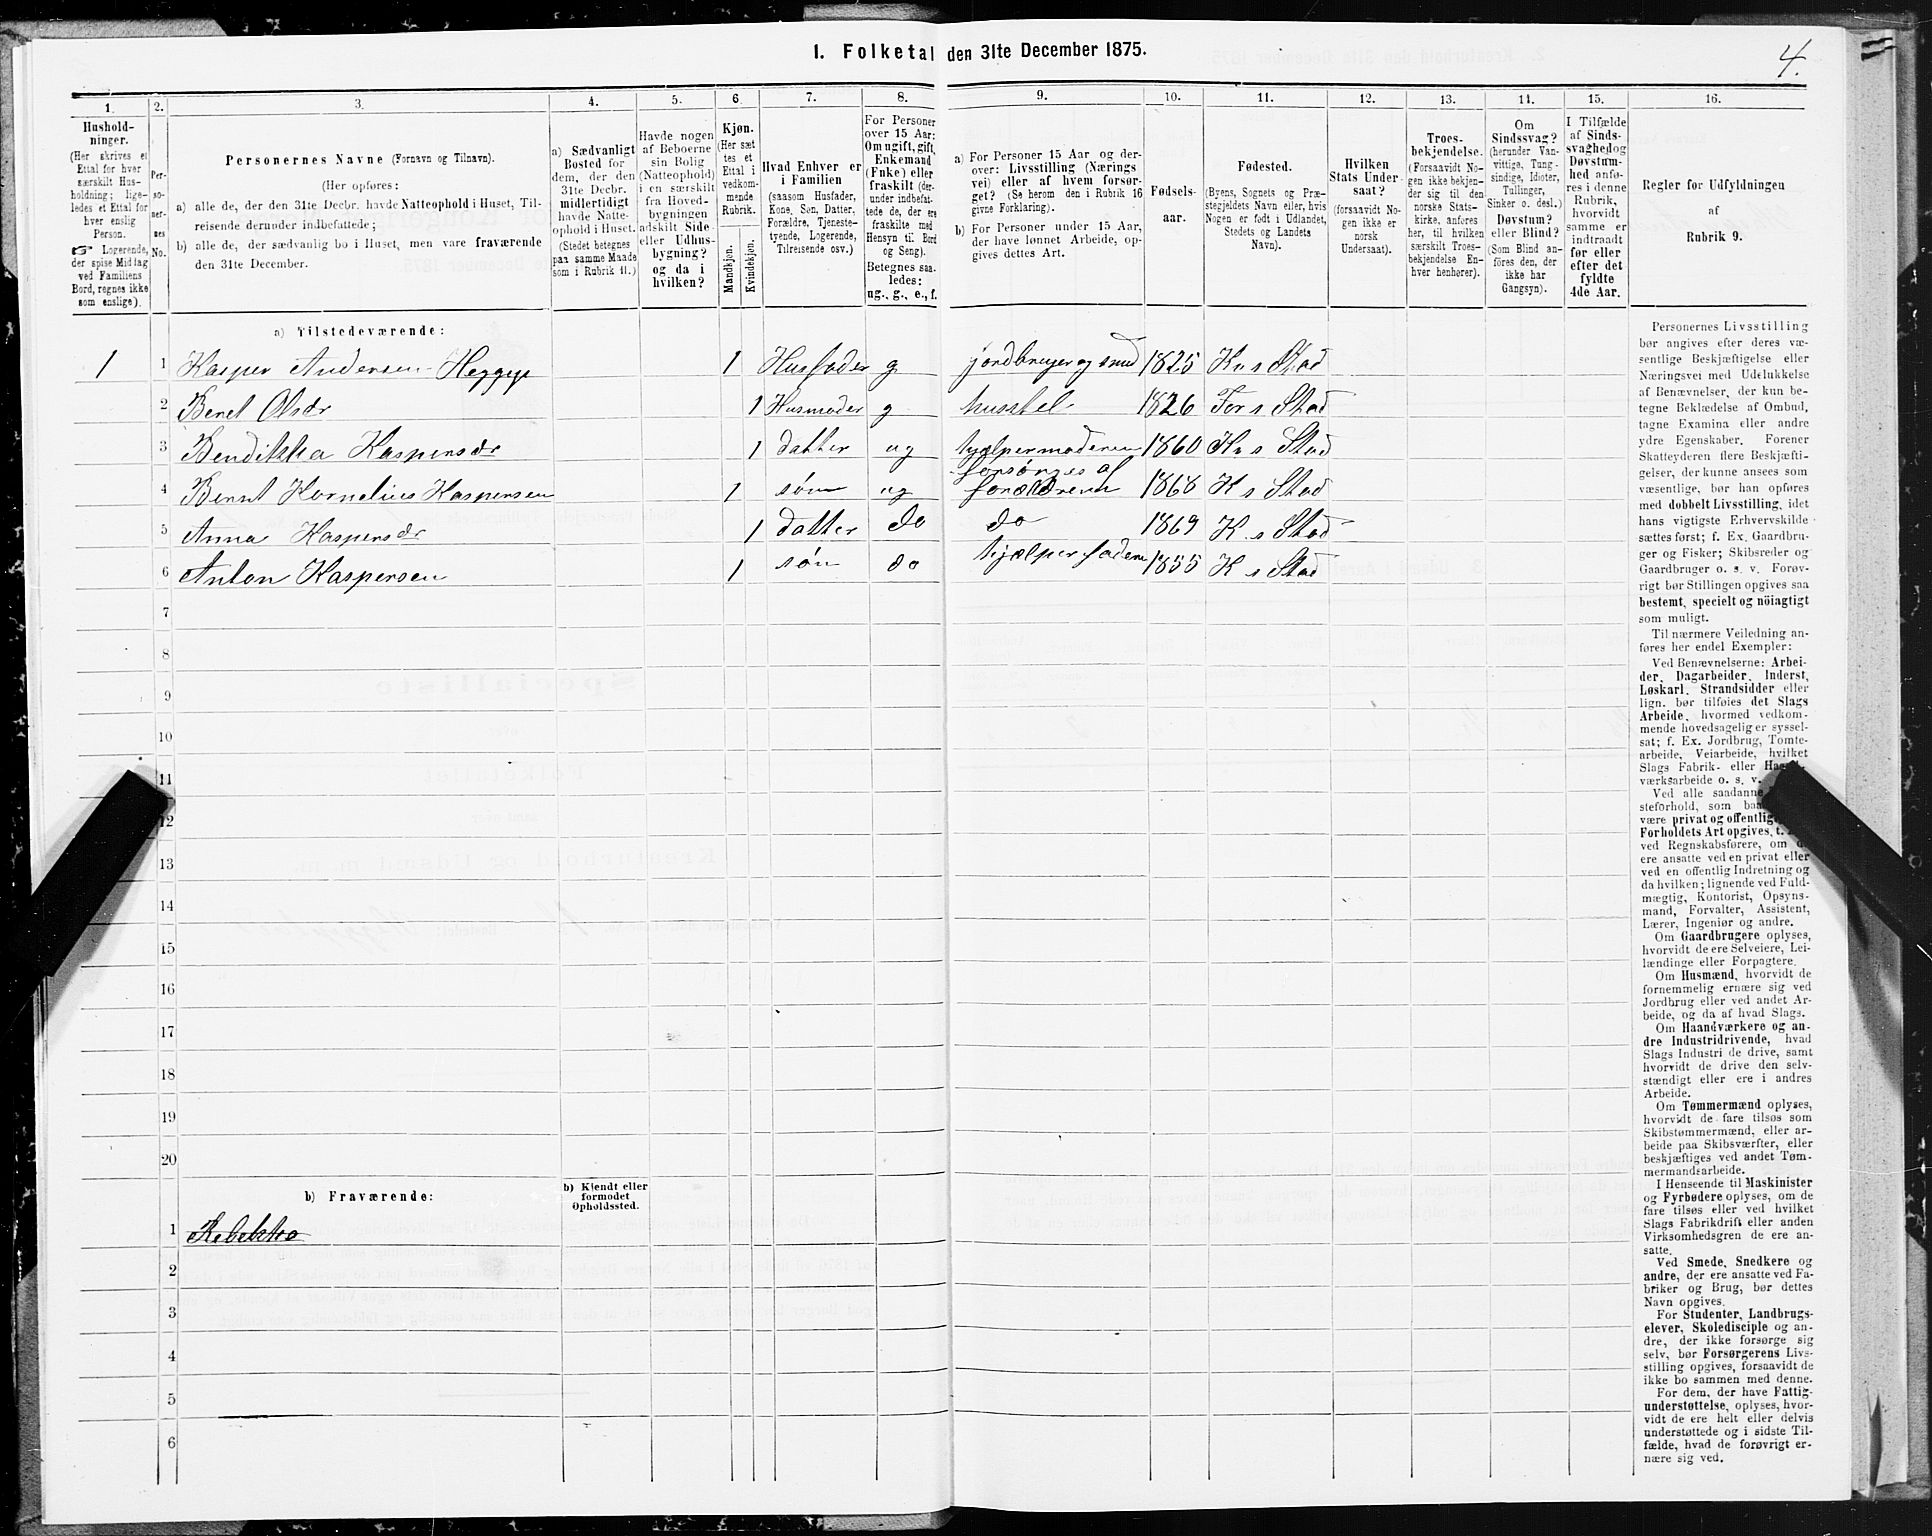 1. Folketal den 31te December 1875.
4.
1.
2.
3.
4.
5.
6.
7.
8.
9.
10.
11.
12.
13.
14.
15.
16.
Hushold-
ninger.
(Her skrives et
Ettal for hver
særskilt Hus-
holdning; lige-
ledes et Ettal for
hver enslig
Person.
☞ Logerende,
der spise Middag
ved Familiens
Bord, regnes ikke
som enslige).
Per-
so-
ner-
nes
No.
Personernes Navne (Fornavn og Tilnavn).
(Her opføres:
a) alle de, der den 31te Decbr. havde Natteophold i Huset, Til-
reisende derunder indbefattede;
b) alle de, der sædvanlig bo i Huset, men vare fraværende
den 31te December.
a) Sædvanligt
Bosted for
dem, der den
31te Decbr.
midlertidigt
havde Natte-
ophold i Huset.
(Stedet betegnes
paa samme Maade
som i Rubrik 11.)
Havde nogen
af Beboerne
sin Bolig
(Natteophold)
i en særskilt
fra Hoved-
bygningen
adskilt Side-
eller Udhus-
bygning?
og da i
hvilken?
Kjøn.
(Her sæt
tes et
Ettal i
vedkom-
mende
Rubrik.
Mandkjøn.
Kvindekjøn.
Hvad Enhver er
i Familien
(saasom Husfader,
Kone, Søn, Datter,
Forældre, Tjeneste-
tyende, Logerende,
Tilreisende osv.)
For Personer
over 15 Aar:
Om ugift, gift,
Enkemand
(Enke) eller
fraskilt (der-
under indbefat-
tede de, der ere
fraskilte med
Hensyn til Bord
og Seng).
Betegnes saa-
ledes:
ug., g., e., f.
a) For Personer 15 Aar og der-
over: Livsstilling (Nærings
vei) eller af hvem forsør-
get? (Se herom den i Rubrik 16
givne Forklaring).
b) For Personer under 15 Aar,
der have lønnet Arbeide, op-
gives dettes Art.
Fødsels-
aar.
Fødested.
(Byens, Sognets og Præ-
stegjeldets Navn eller, hvis
Nogen er født i Udlandet,
Stedets og Landets
Navn).
Hvilken
Stats Under-
saat?
(forsaavidt No-
gen ikke er
norsk
Undersaat).
Troes-
bekjendelse.
(Forsaavidt No-
gen ikke bekjen-
der sig til den
norske Stats-
kirke, anføres
her, til hvilken
særskilt Troes-
bekjendelse En-
hver henhører).
Om
Sindssvag?
(herunder Van-
vittige, Tung-
sindige, Idioter,
Tullinger,
Sinker o. desl.)
Døvstum?
eller Blind?
(Som Blind an-
føres den, der
ikke har
Gangsyn).
I Tilfælde
af Sinds-
svaghed og
Døvstum-
hed anfø-
res i denne
Rubrik,
hvorvidt
samme er
indtraadt
før eller
efter det
fyldte
4de Aar.
Regler for Udfyldningen
af
Rubrik 9.
a) Tilstedeværende:
1 1 Kasper Andersen Heggge 1 Husfader g jordbruger og smed 1825 Kns Stad
2 Beret Olsdr 1 Husmoder g husstel 1826 Fors Stad
3 Bendikka Kaspersdr 1 datter ug hjælper moderen 1860 Kns Stad
forsørges af
4 Bernt Kornelius Kaspersen 1 søn ug forældrene 1868 K s Stad
5 Anna Kaspersdr 1 datter do do 1869 K s Stad
6 Anton Kaspersen 1 søn do hjælper faderen 1855 K s Stad
7
8
9
10
11
12
13
14
15
16
17
18
19
20
b) Fraværende:
b) Kjendt eller
formodet
Opholdssted.
1 Rebekka
2
3
4
5
6
Personernes Livsstilling
bør angives efter deres væ-
sentlige Beskjæftigelse eller
Næringsvei med Udelukkelse
af Benævnelser, der kun be-
tegne Beklædelse af Ombud,
tagne Examina eller andre
ydre Egenskaber. Forener
Skatteyderen flere Beskjæfti-
gelser, der kunne ansees som
væsentlige, bør han opføres
med dobbelt Livsstilling, idet
hans vigtigste Erhvervskilde
sættes først; f. Ex. Gaardbru-
ger og Fisker; Skibsreder og
Gaardbruger o. s. v. Forøv-
rigt bør Stillingen opgives saa
bestemt, specielt og nöiagtigt
som muligt.
Til nærmere Veiledning an-
føres her endel Exempler:
Ved Benævnelserne: Arbei-
der, Dagarbeider, Inderst,
Løskarl, Strandsidder eller
lign. bør tilføies det Slags
Arbeide, hvormed vedkom-
mende hovedsagelig er syssel-
sat; f. Ex. Jordbrug, Tomte-
arbeide, Veiarbeide, hvilket
Slags Fabrik- eller
værksarbeide o. s. v.
Ved alle saadanne
steforhold, som
være privat og offentlig
Forholdets Art opgives, t.
ved Regnskabsførere, om
ere ansatte ved en privat eller
ved en offentlig Indretning og
da hvilken; lignende ved Fuld-
mægtig, Kontorist, Opsyns-
mand, Forvalter, Assistent,
Lærer, Ingeniør og andre.
Om Gaardbrugere oplyses,
hvorvidt de ere Selveiere, Lei-
lændinge eller Forpagtere.
Om Husmænd, hvorvidt de
fornemmelig ernære sig ved
Jordbrug eller ved andet Ar-
beide, og da af hvad Slags.
Om Haandværkere og an-
dre Industridrivende, hvad
Slags Industri de drive, samt
hvorvidt de drive den selv-
stændigt eller ere i andres
Arbeide.
Om Tømmermænd oplyses,
hvorvidt de fare tilsøs som
Skibstømmermænd, eller ar-
beide paa Skibsværfter, eller
beskjæftiges ved andet Tøm-
mermandsarbeide.
I Henseende til Maskinister
og Fyrbødere oplyses, om de
fare tilsøs eller ved hvilket
Slags Fabrikdrift eller anden
Virksomhedsgren de ere an-
satte.
Ved Smede, Snedkere og
andre, der ere ansatte ved Fa-
briker og Brug, bør dettes
Navn opgives.
For Studenter, Landbrugs-
elever, Skoledisciple og an-
dre, der ikke forsørge sig
selv, bør Forsørgerens Livs-
stilling opgives, forsaavidt de
ikke bo sammen med denne.
For dem, der have Fattig-
understøttelse, oplyses, hvor-
vidt de ere helt eller delvis
understøttede og i sidste Til-
fælde, hvad de forøvrigt er-
nære sig ved.